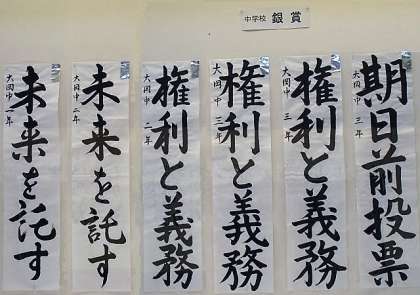 中学校 銀賞
期日前投票
大岡中 三年
権利と義務
大岡中 三年
権利と義務
大岡中 三年
権利と義務
大岡中 二年
未来を託す
大岡中 二年
未来を託す
大岡中 一年